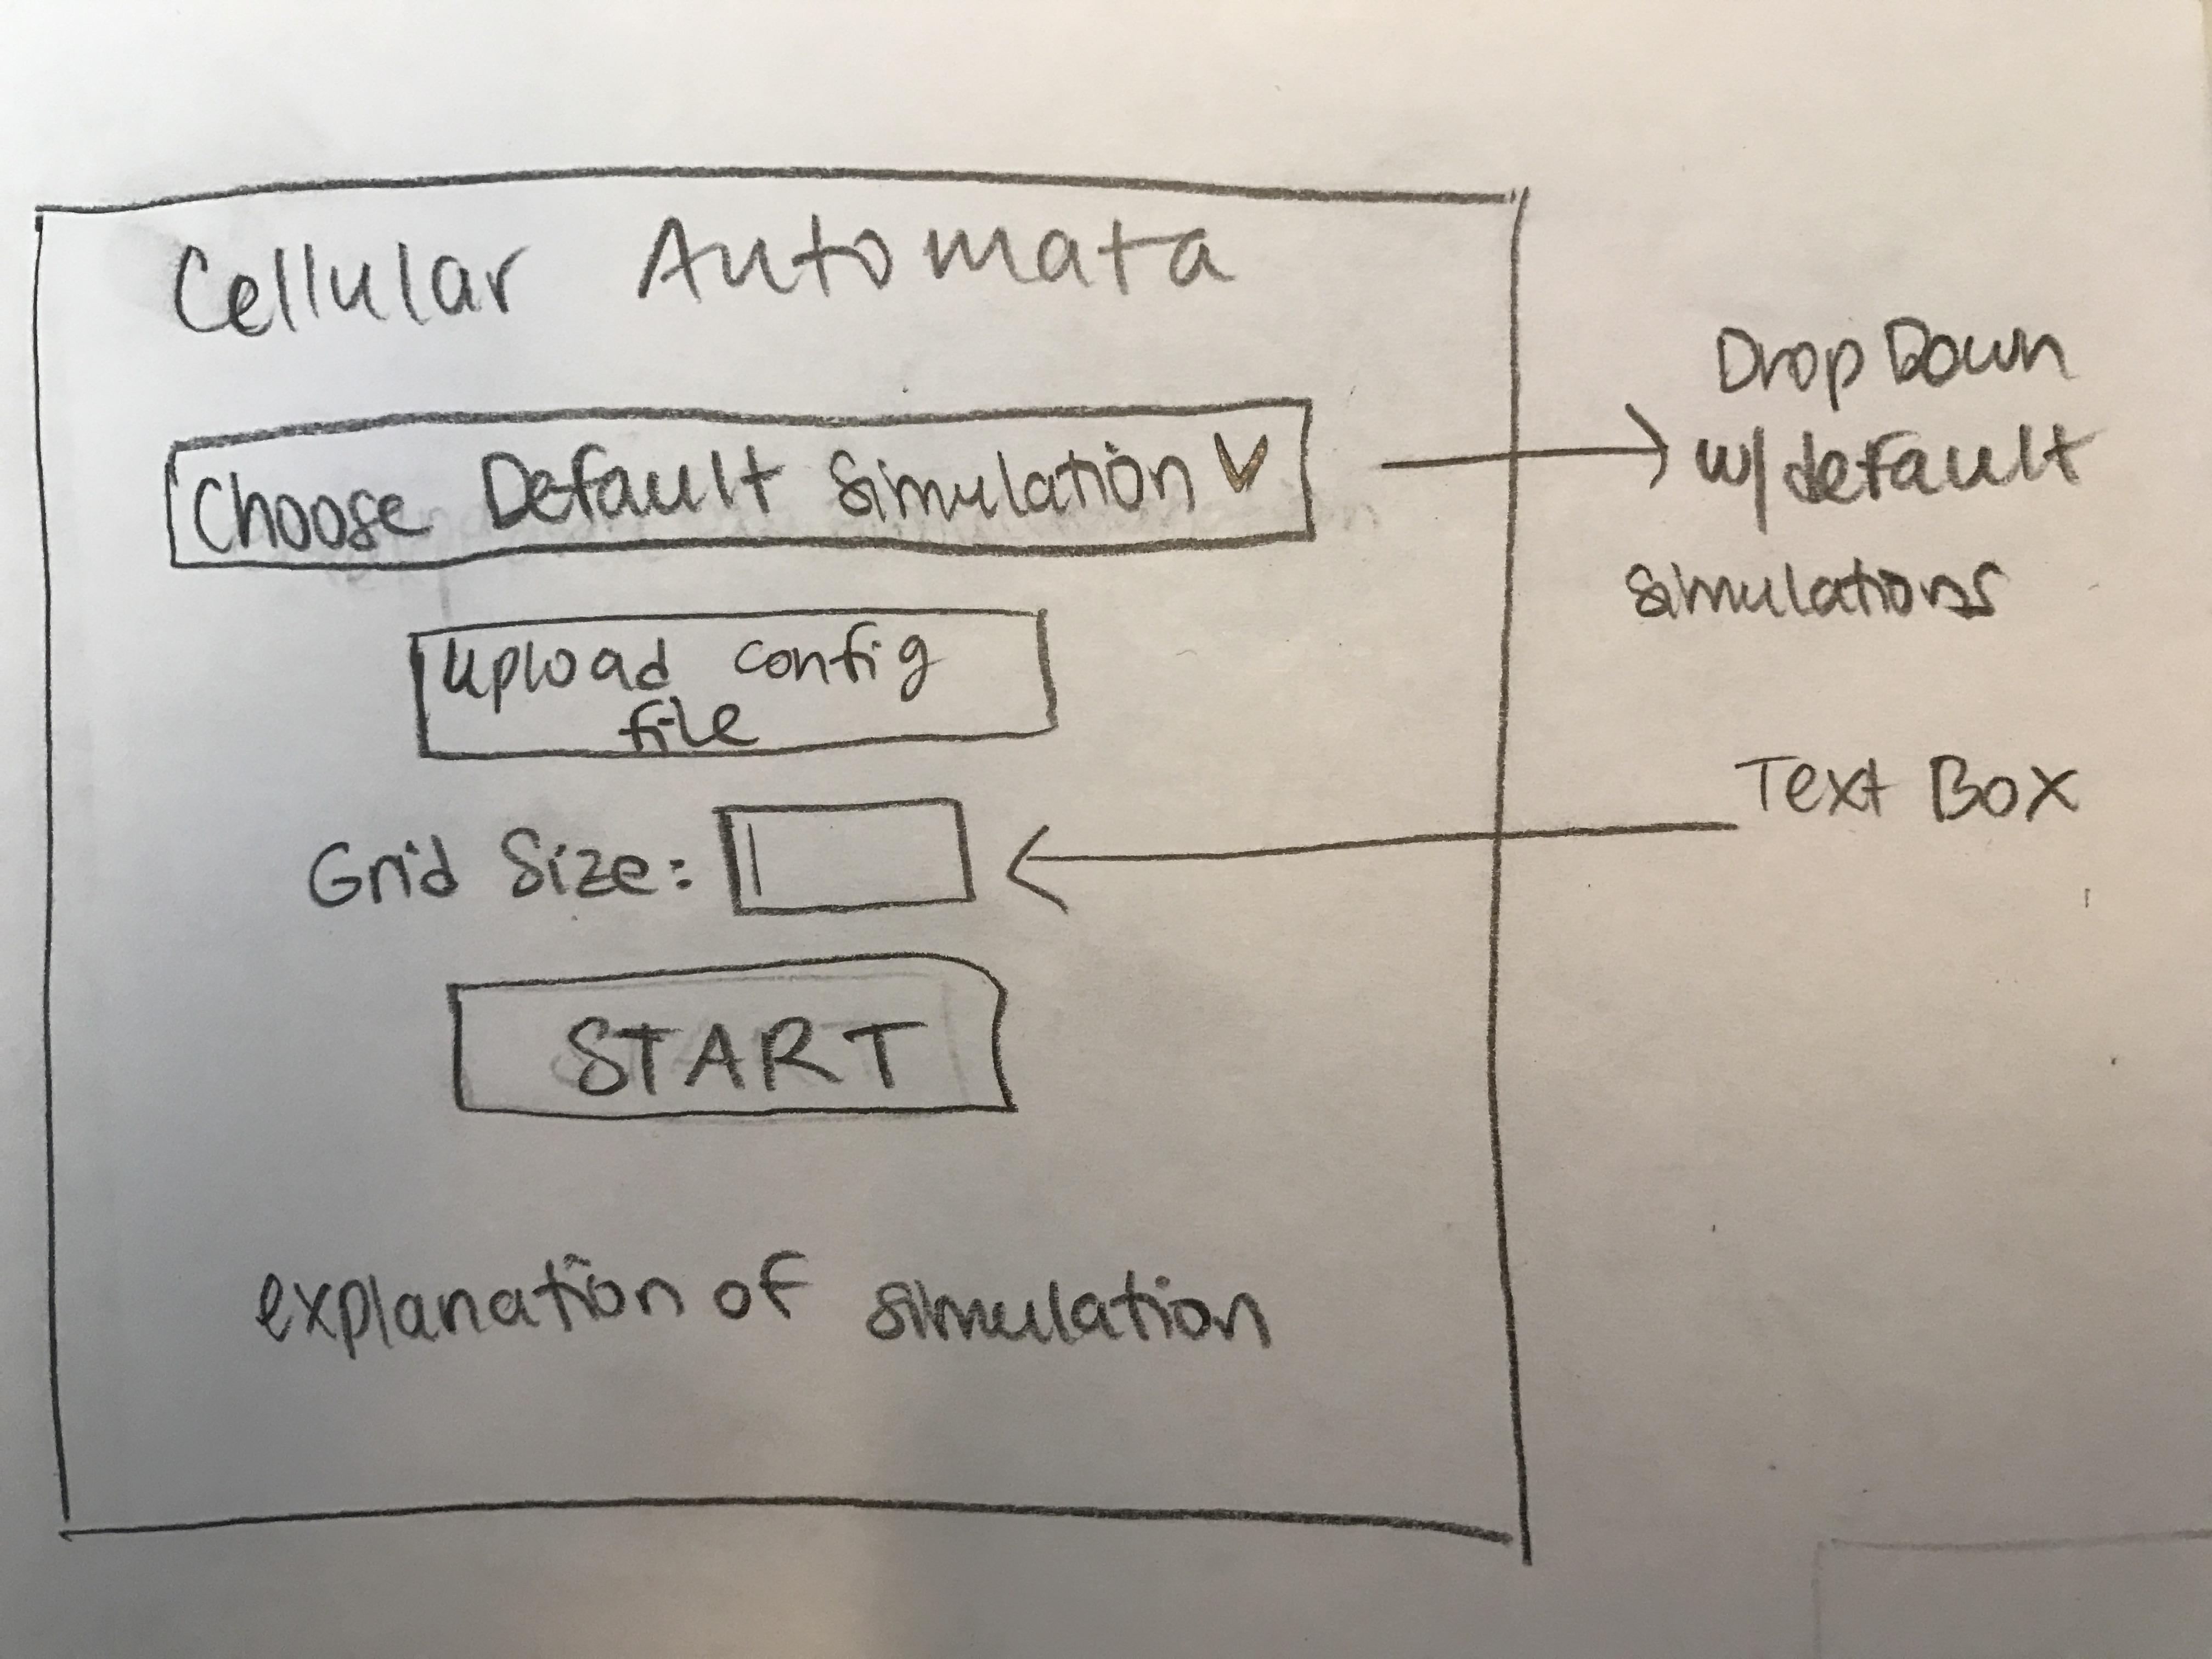 Cellular Automata
Choose Default Simulation
Drop Down
w/ default
simulations
Upload config
file
Text Box
Grid Size:
START
explanation of simulation